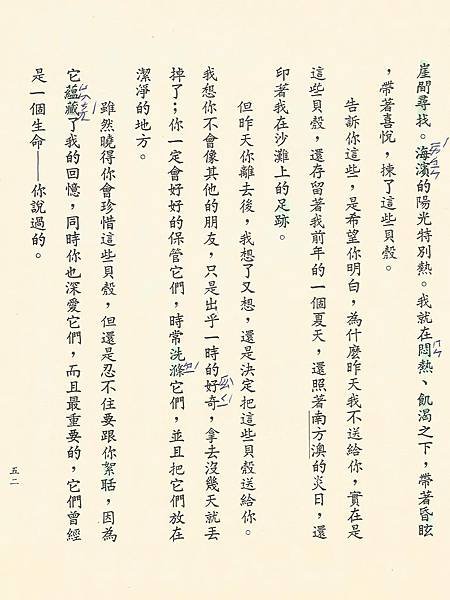 崖間尋找。海濱的陽光特別熱。我就在悶熱、飢渴之下，帶著昏眩
，帶著喜悅，揀了這些貝殼。
告訴你這些，是希望你明白，為什麼昨天我不送給你，實在是
這些貝殼，還存留著我前年的一個夏天，還照著南方澳的炎日，還
印著我在沙灘上的足跡。
但昨天你離去後，我想了又想，還是決定把這些貝殼送給你。
我想你不會像其他的朋友，只是出乎一時的好奇，拿去沒幾天就丟
掉了；你一定會好好的保管它們，時常洗滌它們，並且把它們放在
潔淨的地方。
雖然曉得你會珍惜這些貝殼，但還是忍不住要跟你絮聒，因為
它蘊藏了我的回憶，同時你也深愛它們，而且最重要的，它們曾經
是一個生命——你說過的。
五二